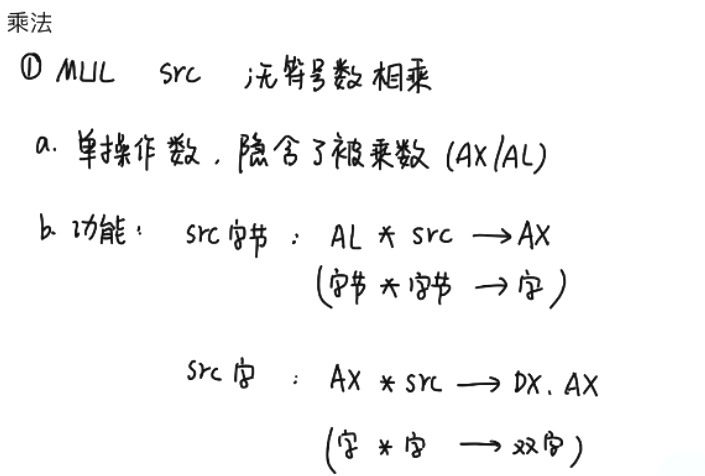 乘法
① MUL src ;无符号数相乘
a. 单操作数，隐含了被乘数 (AX/AL)
b. 功能： src字节 ： AL * src → AX
(字节 * 字节 → 字)
src 字 ： AX * src → DX. AX
(字 * 字 → 双字)